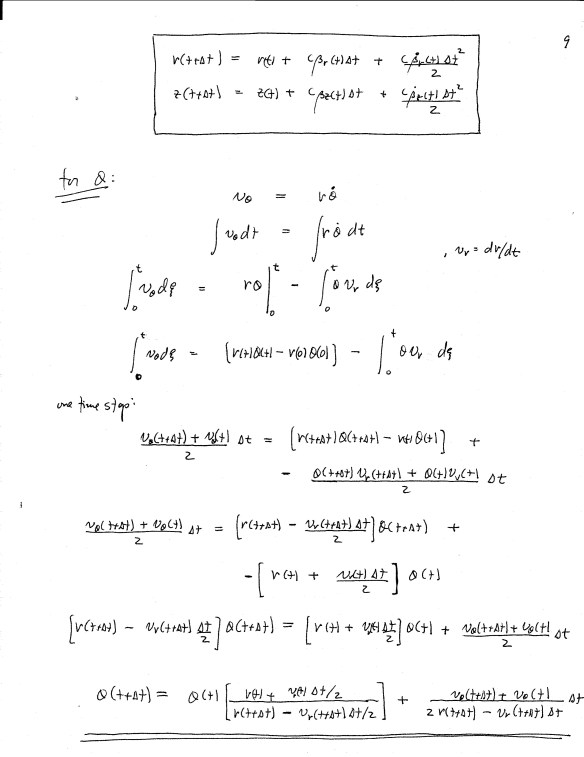 9
r(t+Δt) = r(t) + cβ_r(t)Δt + cβ̇_r(t)Δt²/2
z(t+Δt) = z(t) + cβ_z(t)Δt + cβ̇_z(t)Δt²/2
for θ:
v_θ = rθ̇
∫ v_θ dt = ∫ r θ̇ dt , v_r = dr/dt
∫₀ᵗ v_θ dξ = rθ |₀ᵗ - ∫₀ᵗ θ v_r dξ
∫₀ᵗ v_θ dξ = [r(t)θ(t) - r(0)θ(0)] - ∫₀ᵗ θ v_r dξ
one time step:
(v_θ(t+Δt) + v_θ(t))/2 Δt = [r(t+Δt)θ(t+Δt) - r(t)θ(t)] +
- (θ(t+Δt)v_r(t+Δt) + θ(t)v_r(t))/2 Δt
(v_θ(t+Δt) + v_θ(t))/2 Δt = [r(t+Δt) - v_r(t+Δt)Δt/2] θ(t+Δt) +
- [r(t) + v_r(t)Δt/2] θ(t)
[r(t+Δt) - v_r(t+Δt) Δt/2] θ(t+Δt) = [r(t) + v_r(t) Δt/2] θ(t) + (v_θ(t+Δt) + v_θ(t))/2 Δt
θ(t+Δt) = θ(t) [(r(t) + v_r(t)Δt/2)/(r(t+Δt) - v_r(t+Δt)Δt/2)] + (v_θ(t+Δt) + v_θ(t))/(2r(t+Δt) - v_r(t+Δt)Δt) Δt